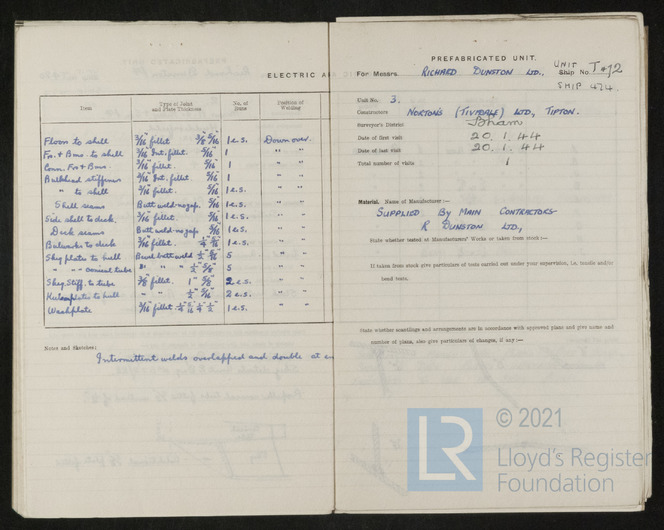 ELECTRIC A
Item Type of Joint and Plate Thickness No. of Runs Position of Welding
Floors to shell 3/16" fillet. 3/8" 5/16" 1 e.s. Down over.
Frs. & Bms. to shell 3/16" Int. fillet. 5/16" 1 " "
Conn. Frs & Bms. 3/16" fillet. 5/16" 1 " "
Bulkhead stiffeners 3/16" Int. fillet 5/16" 1 " "
" to shell 3/16" fillet. 5/16" 1 e.s. " "
Shell seams Butt weld-no gap. 5/16" 1 e.s. " "
Side shell to deck. 3/16" fillet. 5/16" 1 e.s. " "
Deck seams Butt weld-no gap 5/16" 1 e.s. " "
Bulwarks to deck 3/16" fillet. 1/4" 5/16" 1 e.s. " "
Skeg plates to hull Bevel butt weld 1/2" 5/16" 5 " "
" " conical tube " " " 1/2" 5/8" 5 " "
Skeg Stiff. to tube 3/8" fillet. 1" 5/8" 2 e.s. " "
plates to hull " " 1/2" 5/16" 2 e.s. " "
Washplate 3/16" fillet 1/4" 5/16" 1/4" 1/2" 1 e.s. " "
Notes and Sketches:
Intermittent welds overlapped and double at
PREFABRICATED UNIT.
For Messrs. RICHARD DUNSTON LTD., UNIT Ship No. T#12
SHIP 474.
Unit No. 3.
Constructors NORTONS (TIVIDALE) LTD, TIPTON.
Surveyor's District B'ham
Date of first visit 20. 1. 44
Date of last visit 20. 1. 44
Total number of visits 1
Material. Name of Manufacturer:—
SUPPLIED BY MAIN CONTRACTORS-
R DUNSTON LTD,
State whether tested at Manufacturers' Works or taken from stock:—
If taken from stock give particulars of tests carried out under your supervision, i.e. tensile and/or
bend tests.
State whether scantlings and arrangements are in accordance with approved plans and give name and
number of plans, also give particulars of changes, if any:—
LR
© 2021
Lloyd's Register
Foundation